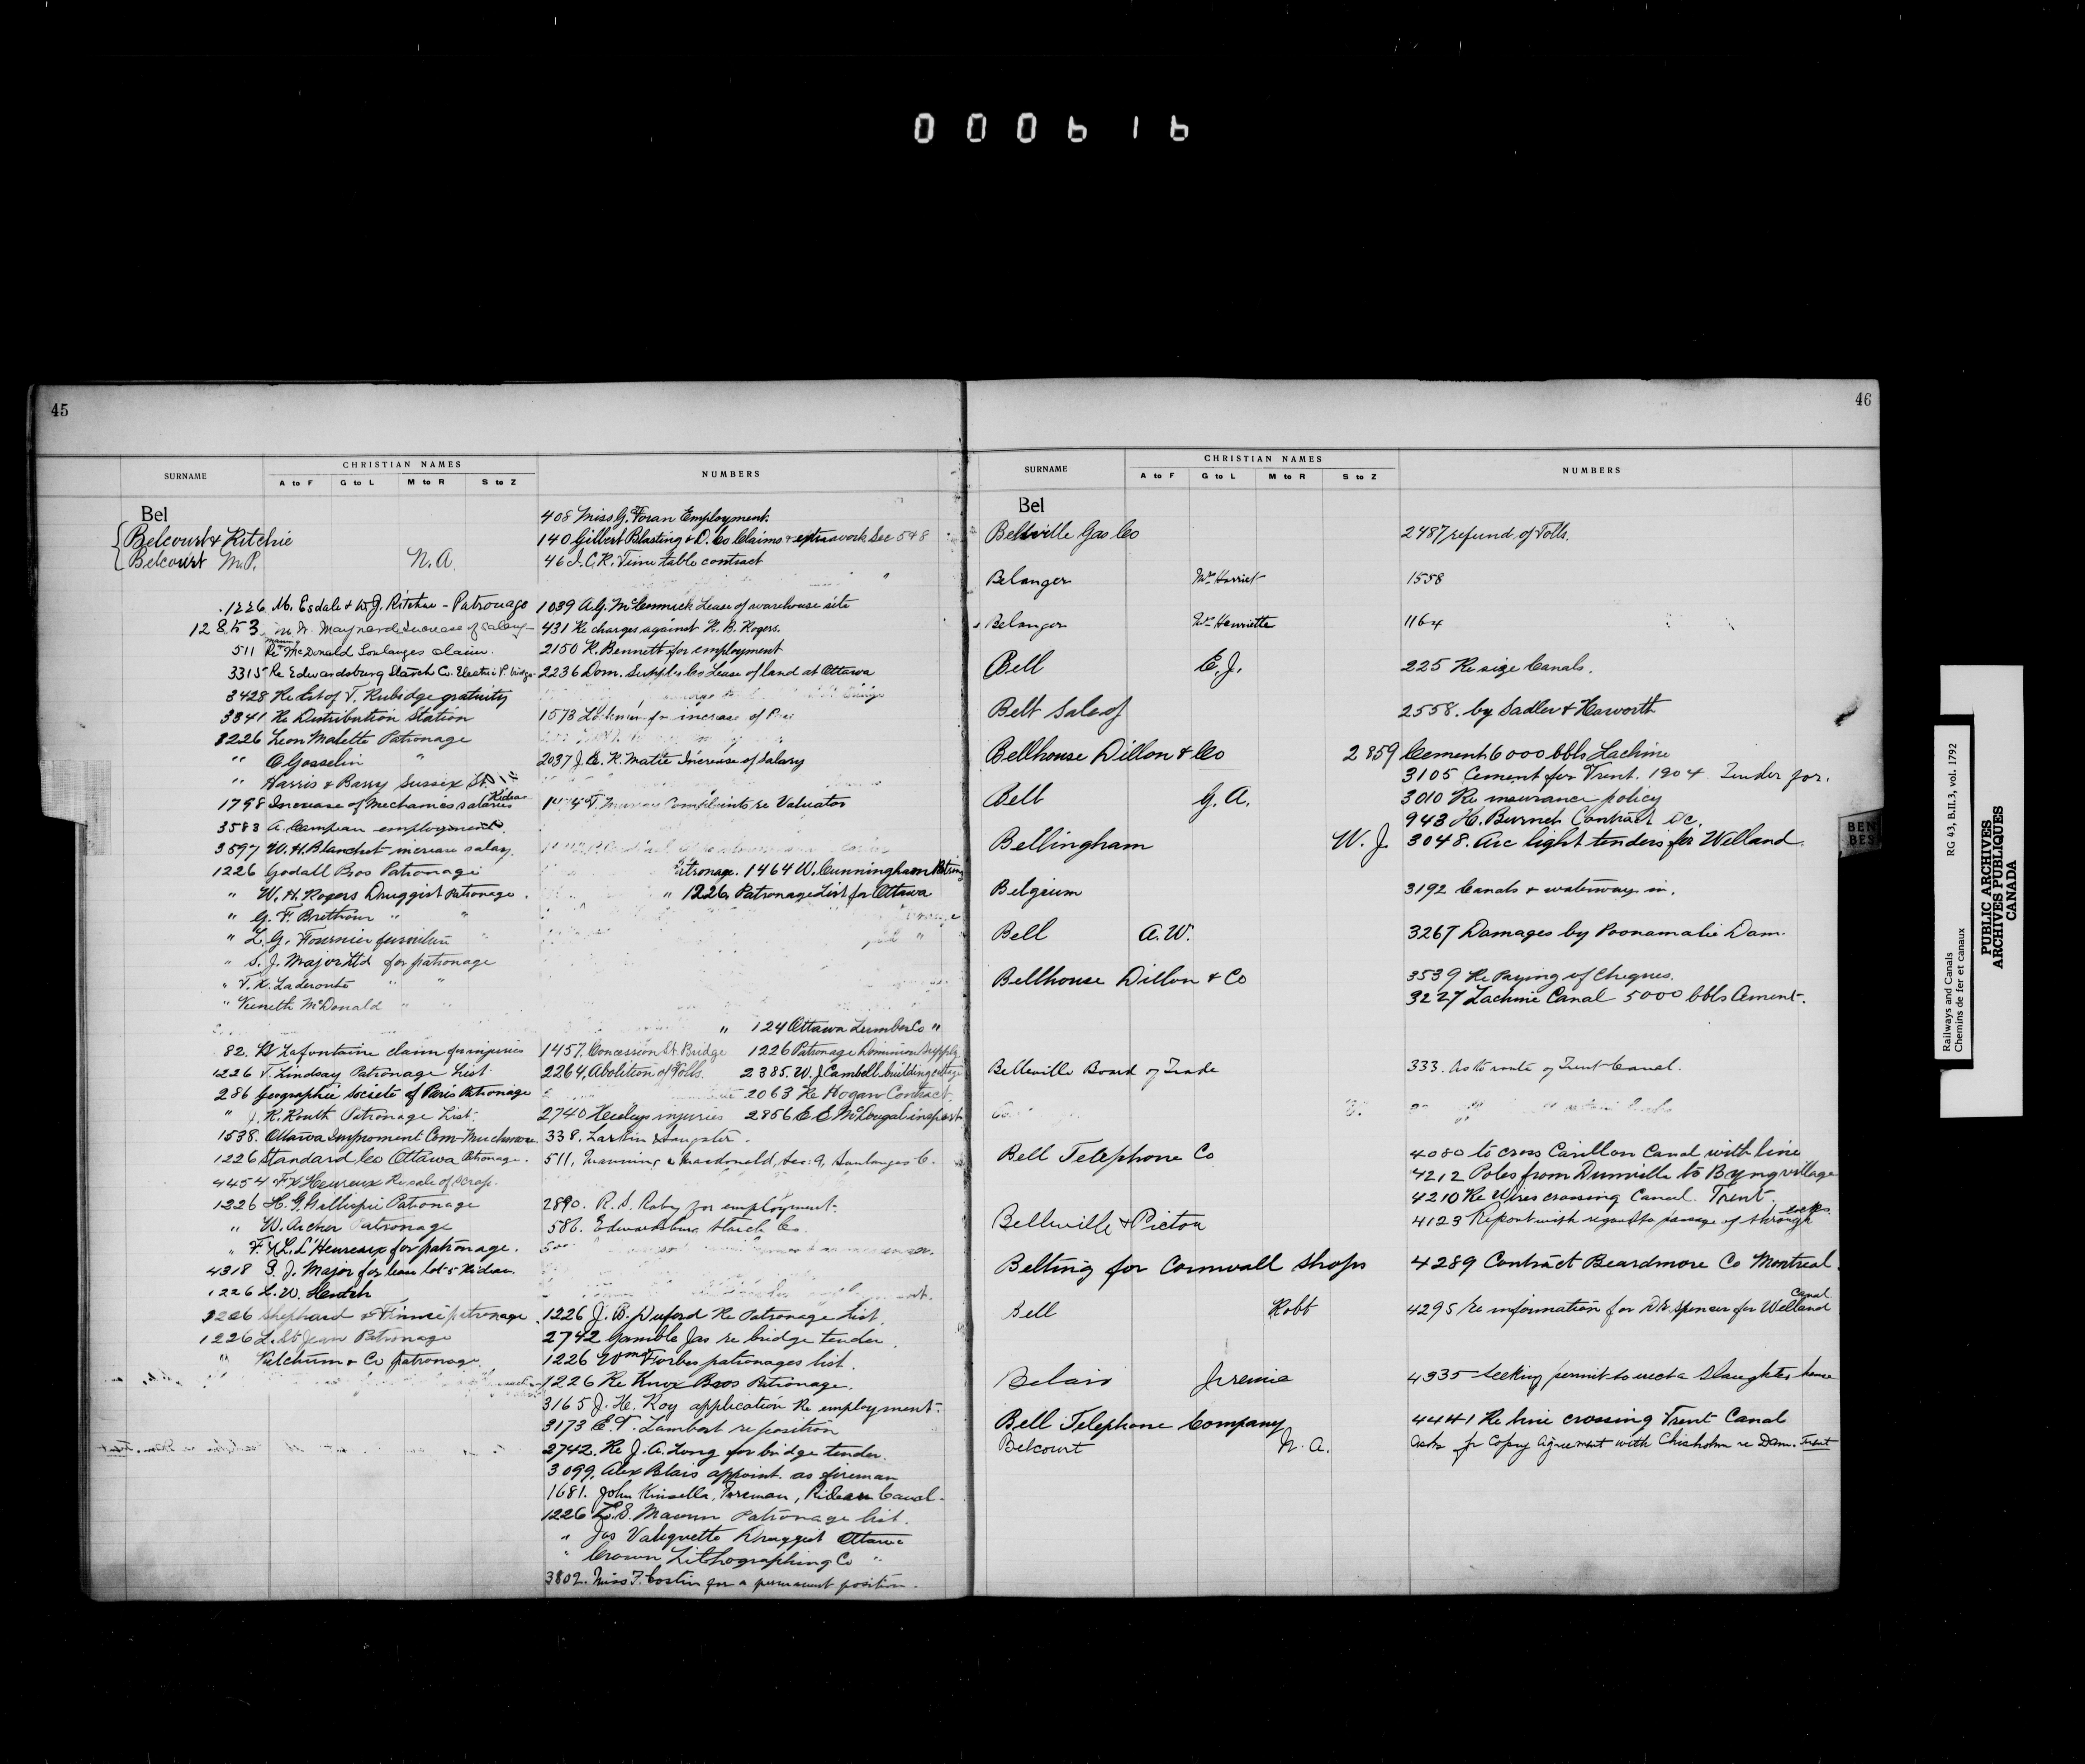 000616
45
SURNAME
CHRISTIAN NAMES
A to F G to L M to R S to Z
NUMBERS
Bel
Belcourt & Ritchie
Belcourt M.P. N.A.
1226 M. Esdale & W.J. Ritchie - Patronage
12853 Maynard Increase of Salary
511 Re Manning McDonald Soulanges claim.
3315 Re Edwardsburg Starch Co. Electric P. bridge
3428 Re list of T. Rubidge gratuity
3341 Re Distribution Station
1226 Leon Malette Patronage
" O Gosselin "
" Harris & Barry Sussex St.
1798 Increase of Mechanics salaries Rideau
3583 A. Campeau employment.
3597 W.H. Blanchet increase salary.
1226 Godall Bros Patronage
" W.H. Rogers Druggist Patronage.
" G.F. Brethour " "
" L.G. Fournier furniture "
" S.J. Major Ltd for patronage
" T.X. Laderoute " "
" Kenneth McDonald " "
82. Lafontaine claim for injuries
1226 T. Lindsay Patronage List.
286 Geographie Societe of Paris Patronage
" J.R. Routh Patronage List.
1538. Ottawa Improment Com-
1226 Standard Co Ottawa Patronage.
4454 F.X. Heureux Re sale of scrap.
1226 H.G. Gillispie Patronage
" W. Archer Patronage
" F.X.L. L'Heureux for patronage.
4318 S.J. Major for lease lot 5 Rideau.
1226 L.W.
Shephard & patronage
1226 L. St Jean Patronage
" Ketchum & Co patronage.
408 Miss G. Foran Employment.
140 Gilbert Blasting & D. Co Claims extra work Sec 548
46 I.C.R. Time table contract
1039 A.G. McCormick Lease of warehouse site
431 Re charges against R.B. Rogers.
2150 R. Bennett for employment
2236 Dom. Supplies Co Lease of land at Ottawa
1573 increase of
2037 J.E.R. Matte Increase of Salary
Complaints re Valuator
1464 W. Cunningham
" 1226 Patronage List for Ottawa
" 124 Ottawa Lumber Co "
1457. Concession St. Bridge 1226 Patronage Dominion Supply
2264, Abolition of Tolls. 2385. W.J. Cambell. building cottage
2063 Re Hogan Contract
2740 injuries 2856 E.E. McDougal inspect
338. Larkin & Sangster.
511, Manning & Macdonald, Sec: 9, Soulanges C.
2890. R.S. Roby for employment.
586. Edwardsburg Starch Co.
1226 J.B. Duford Re Patronage List.
2742 Gamble Jas re bridge tender.
1226 Wm Forbes patronages list.
1226 Re Knox Bros Patronage.
3165 J.H. Roy application Re employment.
3173 E.T. Lambert re position
2742. Re J.A. Long for bridge tender.
3099, Alex Blais appoint. as fireman
1681. John Kinsella, Foreman, Rideau Canal.
1226 Patronage list.
" Jas Valiquette Druggist Ottawa
" Crown Lithographing Co "
3802. Miss F. Costin for a permanent position.
46
SURNAME
CHRISTIAN NAMES
A to F G to L M to R S to Z
NUMBERS
Bel
Belleville Gas Co 2487 refund of Tolls.
Belanger Mrs Harriet 1558
Belanger Henriette 1164
Bell E.J. 225 Re size Canals.
Belt Sale of 2558. by Sadler & Haworth
Bellhouse Dillon & Co 2859 Cement 6000 bbls Lachine
3105 Cement for Trent. 1904. Tender for.
Bell G.A. 3010 Re insurance policy
943 H. Burnet Contract &c.
Bellingham W.J. 3048. Arc light tenders for Welland
Belgium 3192 Canals & waterways in.
Bell A.W. 3267 Damages by Poonamalie Dam.
Bellhouse Dillon & Co 3539 Re Paying of Cheques.
3227 Lachine Canal 5000 bbls Cement.
Belleville Board of Trade 333. As to route of Trent Canal.
Bell Telephone Co 4080 to cross Carillon Canal with line
4212 Poles from Dunnville to Byng village
4210 Re Wires crossing Canal. Trent.
Belleville & Picton 4123 Report with regard to passage of through locks.
Belting for Cornwall Shops 4289 Contract Beardmore Co Montreal.
Bell Robt 4295 re information for Dr. Spencer for Welland Canal
Belair Jeremie 4335 Seeking permit to erect a Slaughter house
Bell Telephone Company 4441 Re line crossing Trent Canal
Belcourt N.A. Asks for Copy Agreement with Chisholm re Dam. Trent
BEN
BES
Railways and Canals
Chemins de fer et canaux
RG 43, B.II.3, vol. 1792
PUBLIC ARCHIVES
ARCHIVES PUBLIQUES
CANADA